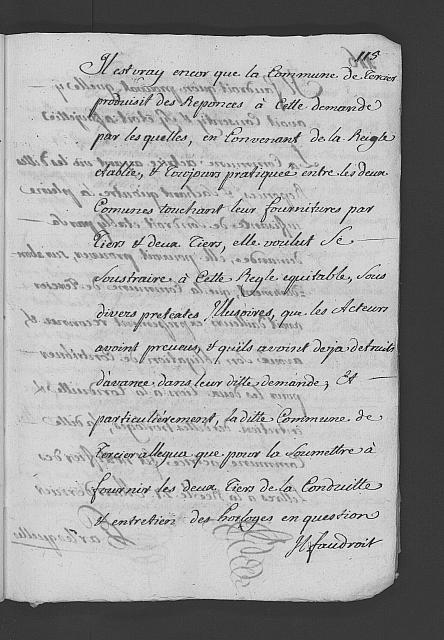 115
Il est vray encor que la Commune de Torcier
produisit des Reponces à Cette demande
par les quelles, en Convenant de la Reigle
établie, et toujours pratiquée entre les deux
Comunes touchant leur fournitures par
tiers et deux tiers, elle voulut Se
Soustraire à Cette Regle equitable, Sous
divers pretextes Illusoires, que les Acteurs
avoint prevus, et qu'ils avoint deja detruits
d'avance dans leur ditte demande; Et
particulièrement, la ditte Commune de
Torcier allegua que pour la Soumettre à
fournir les deux tiers de la Conduitte
et entretien des horloges en question
Il faudroit